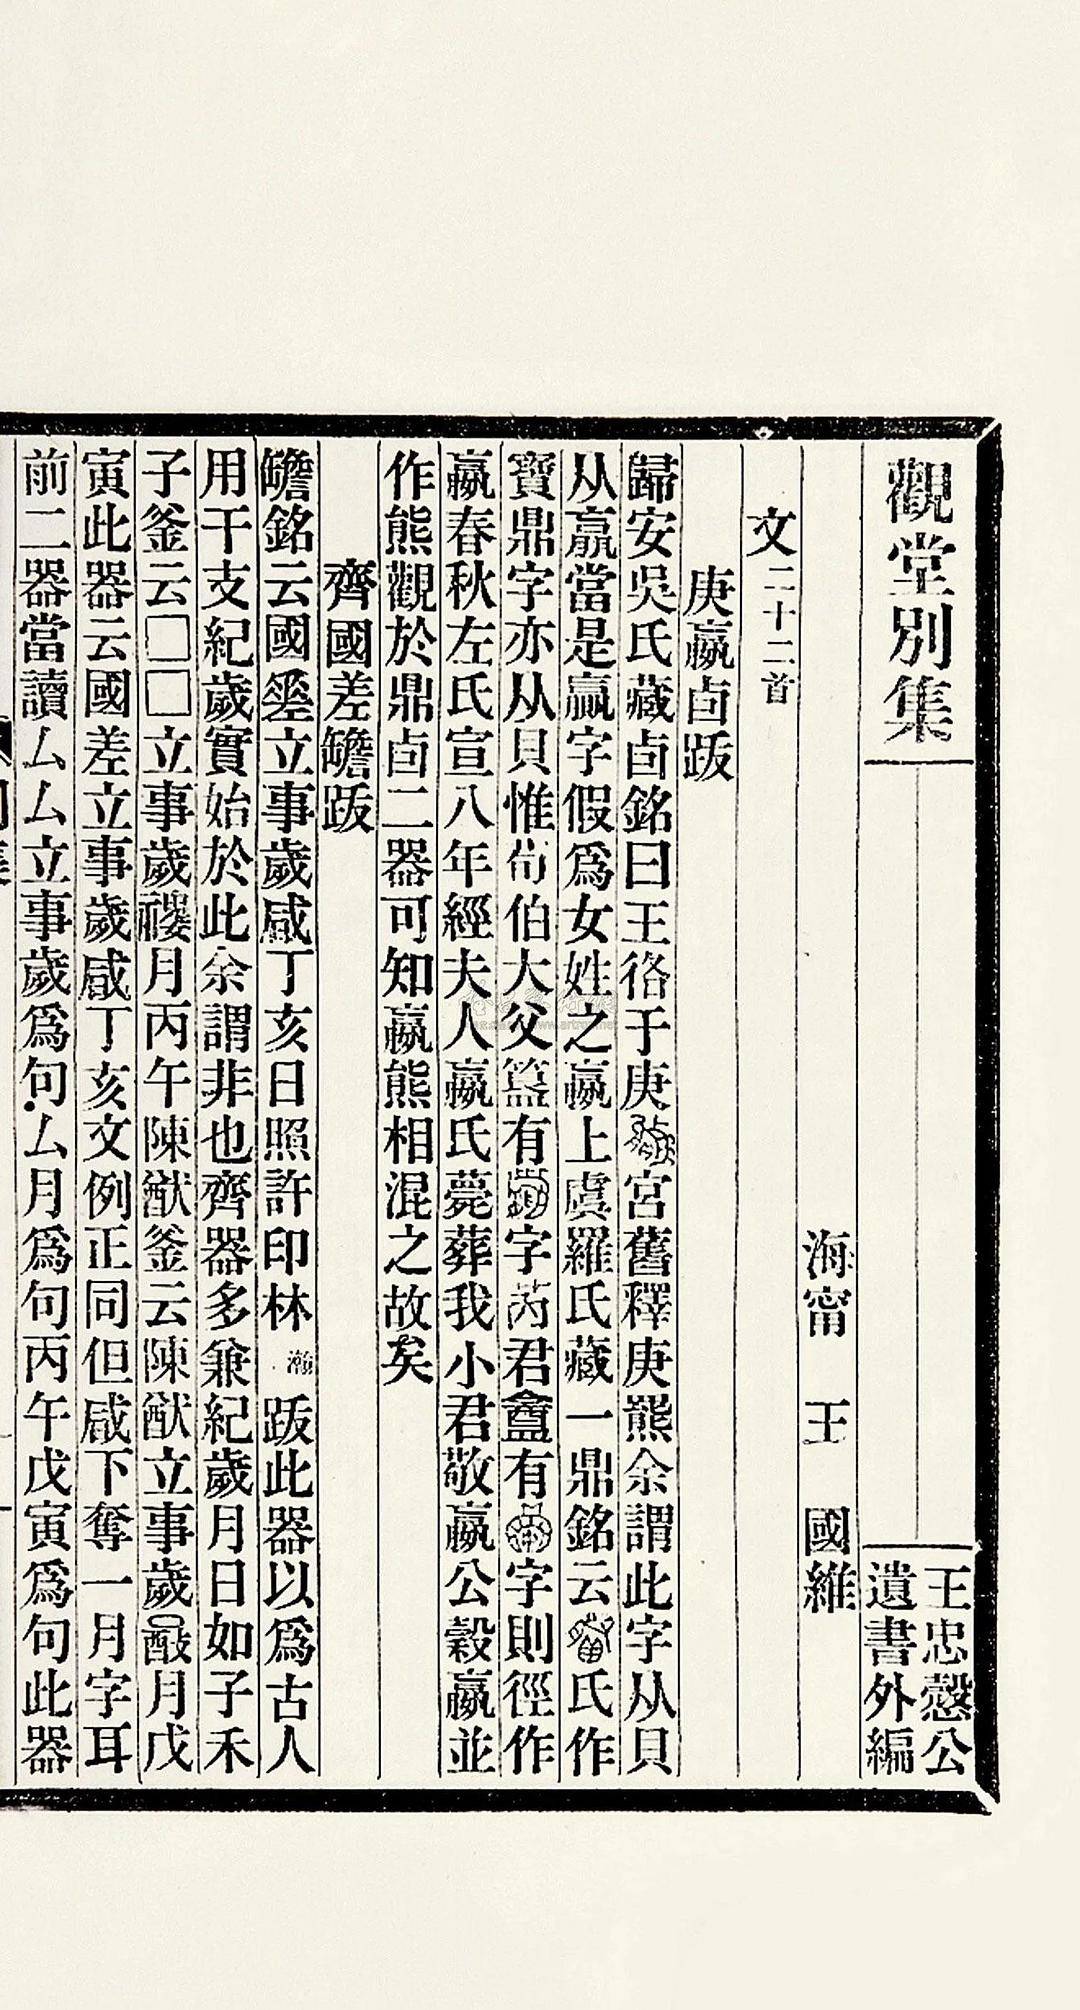 觀堂別集
王忠慤公
遺書外編
海甯 王 國維
文二十二首
庚嬴卣跋
歸安吳氏藏卣銘曰王洛于庚宮舊釋庚羆余謂此字从貝
从𣎆當是贏字假爲女姓之嬴上虞羅氏藏一鼎銘云氏作
寶鼎字亦从貝惟伯大父簋有字芮君盦有字則徑作
嬴春秋左氏宣八年經夫人嬴氏薨葬我小君敬嬴公穀嬴並
作熊觀於鼎卣二器可知嬴熊相混之故矣
齊國差𦉜跋
𦉜銘云國差立事歲咸丁亥日照許印林瀚跋此器以爲古人
用干支紀歲實始於此余謂非也齊器多兼紀歲月日如子禾
子釜云□□立事歲禝月丙午陳猷釜云陳猷立事歲月戊
寅此器云國差立事歲咸丁亥文例正同但咸下奪一月字耳
前二器當讀厶厶立事歲爲句厶月爲句丙午戊寅爲句此器